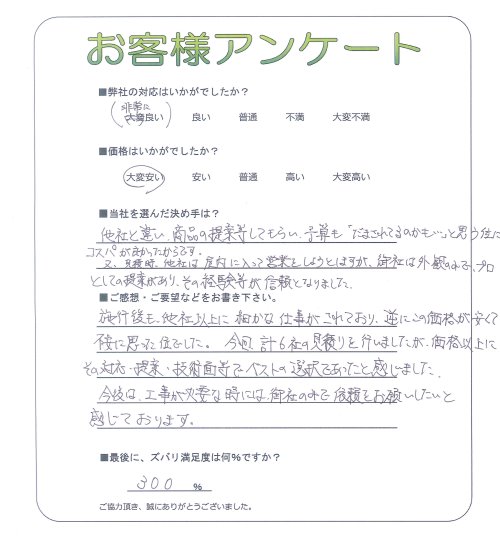 お客様アンケート
■弊社の対応はいかがでしたか？
非常に
大変良い 良い 普通 不満 大変不満
■価格はいかがでしたか？
大変安い 安い 普通 高い 大変高い
■当社を選んだ決め手は？
他社と違い、商品の提案等してもらい、予算も「だまされてるのかも…」と思う位に
コスパが良かったからです。
又、見積時、他社は屋内に入って営業をしようとしますが、御社は外観のみで、プロ
としての提案があり、その経験等が信頼となりました。
■ご感想・ご要望などをお書き下さい。
施行後も、他社以上に細かな仕事がされており、逆にこの価格が安くて
不安に思った位でした。 今回、計6社の見積りを行いましたが、価格以上に
その対応・提案・技術面等でベストの選択であったと感じました。
今後は、工事が必要な時には、御社のみで依頼をお願いしたいと
感じております。
■最後に、ズバリ満足度は何％ですか？
300 %
ご協力頂き、誠にありがとうございました。